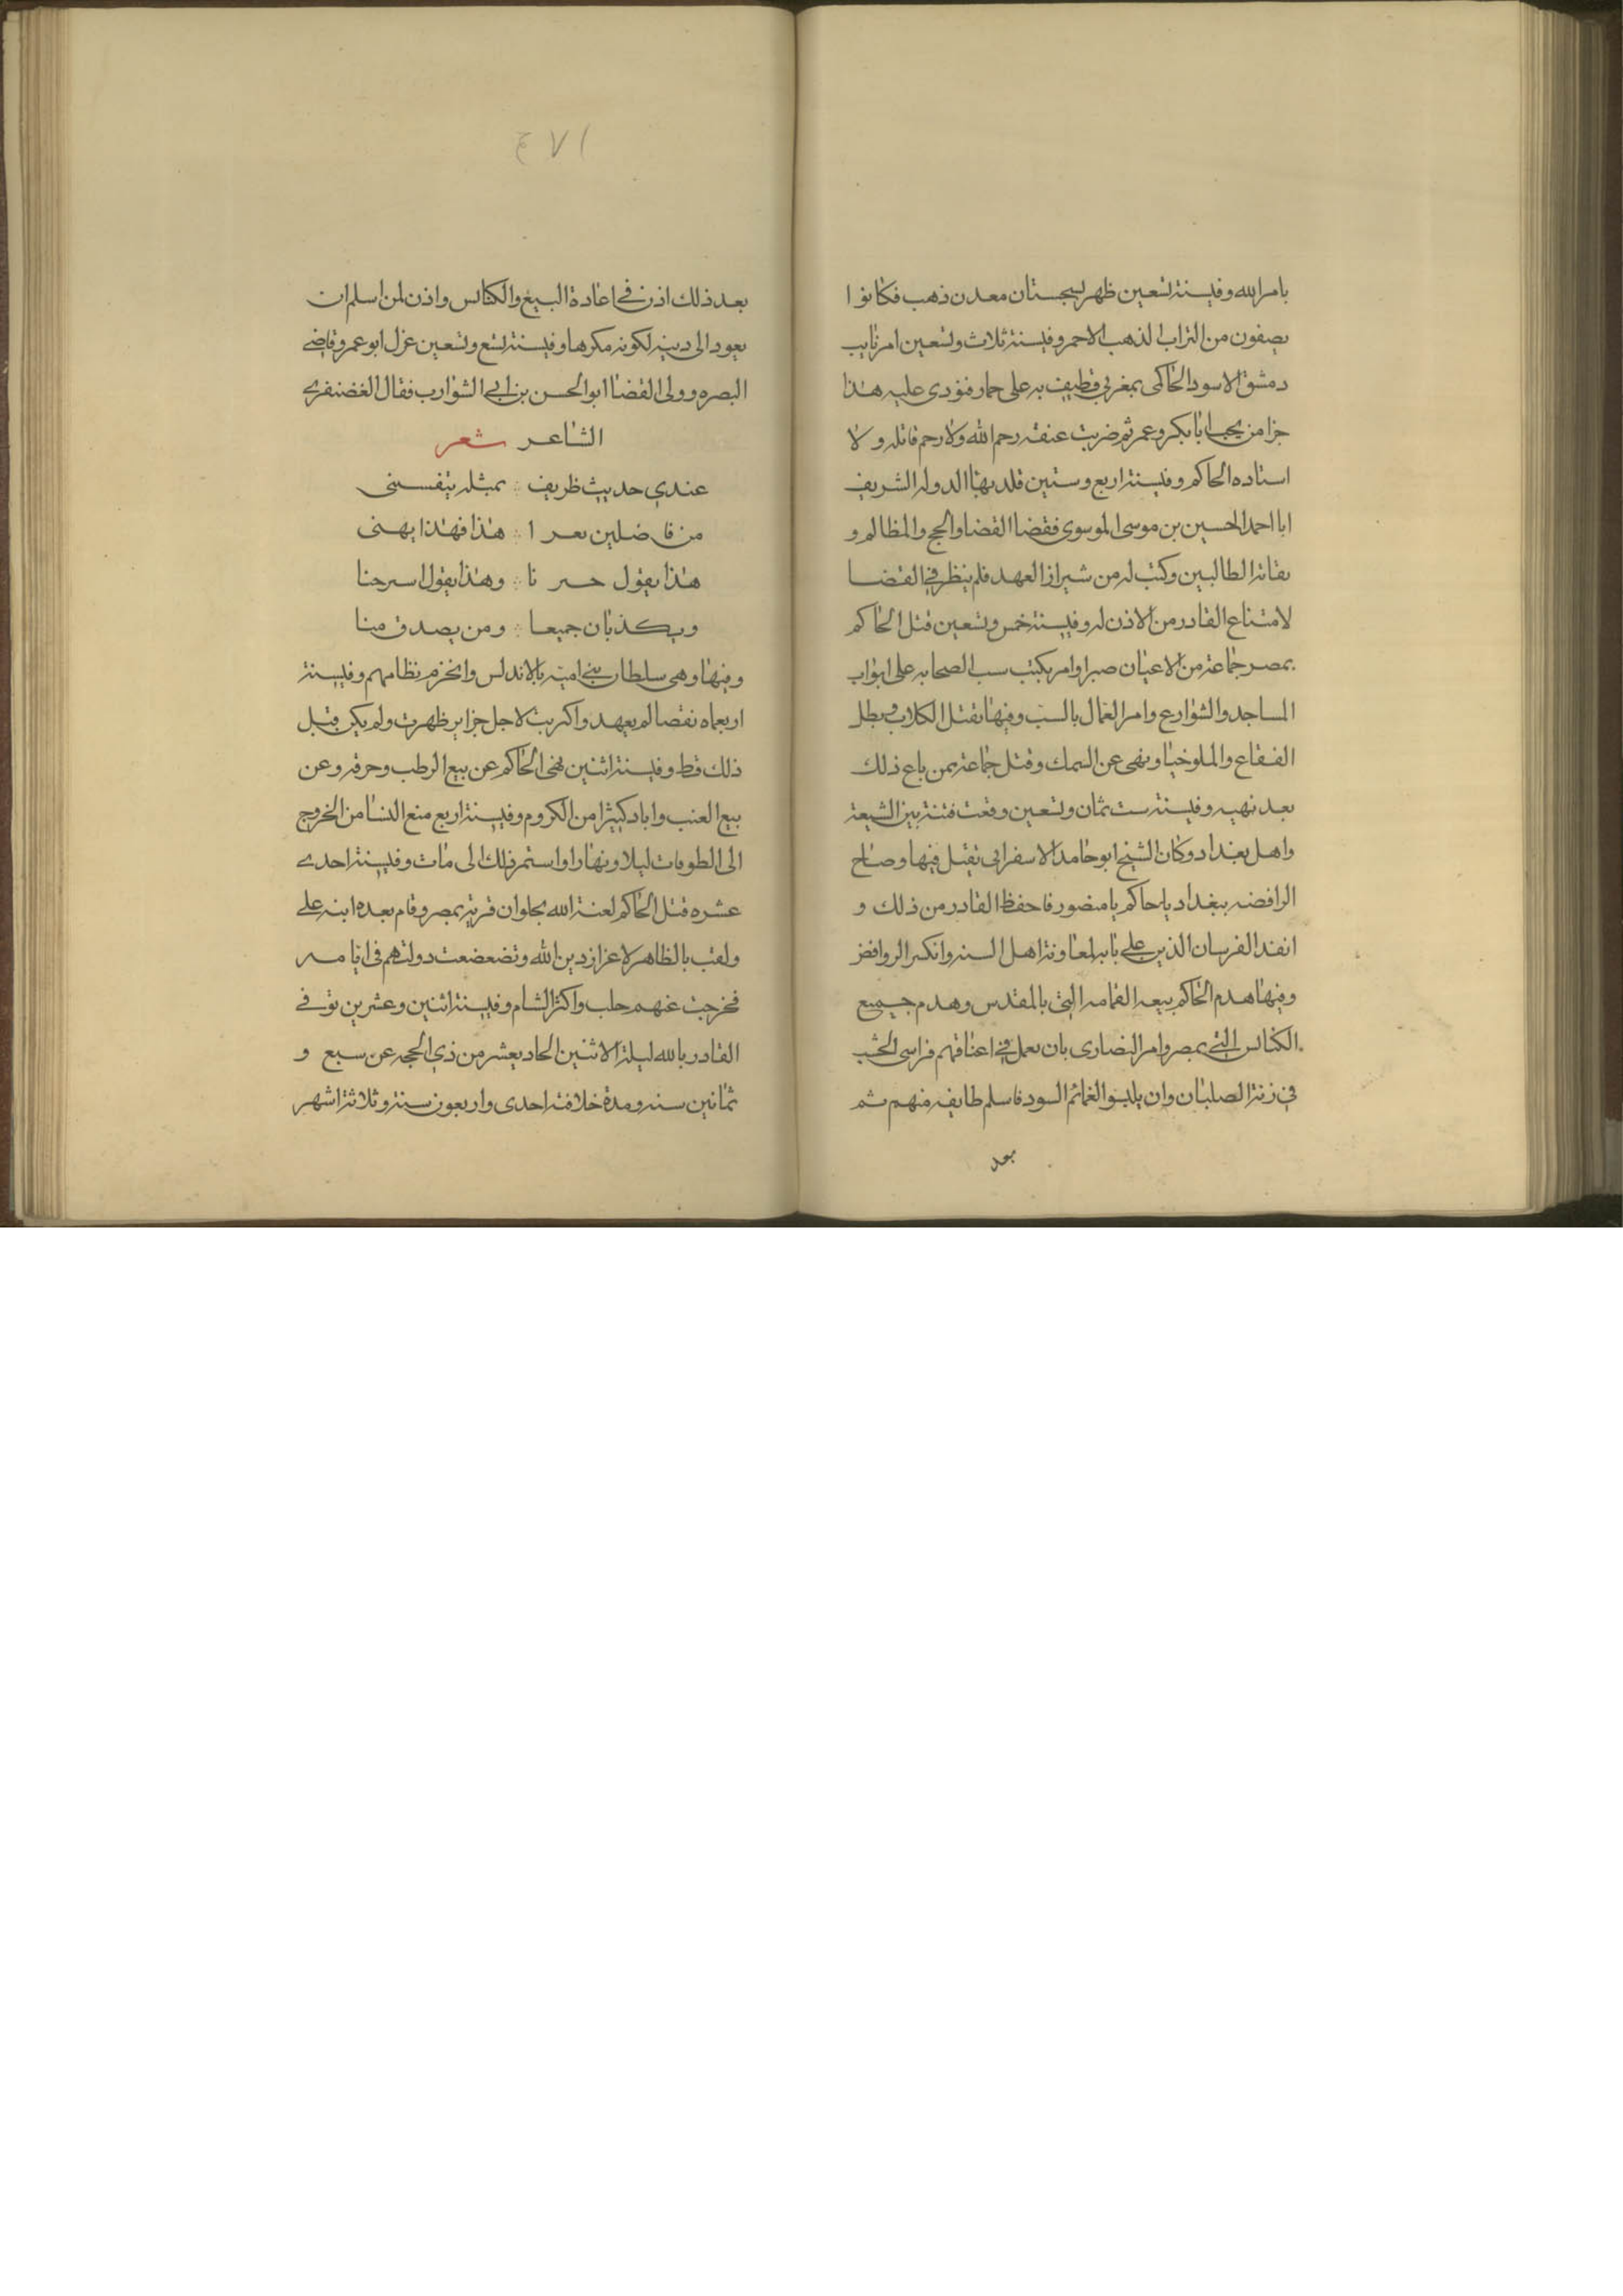 بامرالله وفي سنة تسعين ظهر بسجستان معدن ذهب فكانوا
يصفون من التراب الذهب الاحمر وفي سنة ثلاث وتسعين امر نايب
دمشق الاسود الحاكمى بمغربي فطيف به على حمار فنودى عليه هذا
جزا من يحب ابا بكر وعمر ثم ضربت عنقه رحم الله ولا رحم قاتله ولا
استاده الحاكم وفي سنة اربع وستين قلد بها الدوله الشريف
ابا احمد الحسين بن موسى الموسوى فقضا القضا والحج والمظالم و
نقابة الطالبين وكتب له من شيراز العهد فلم ينظر في القضا
لامتناع القادر من الاذن له وفي سنة خمس وتسعين قتل الحاكم
بمصر جماعة من الاعيان صبرا وامر بكتب سب الصحابه على ابواب
المساجد والشوارع وامر العمال بالسب وفيها بقتل الكلاب وبطل
الفقاع والملوخيا ونهى عن السمك وقتل جماعة ممن باع ذلك
بعد نهيه وفي سنة ست ثمان وتسعين وقعت فتنة بين الشيعة
واهل بغداد وكان الشيخ ابو حامد الاسفرايى يقتل فيها وصاح
الرافضه ببغداد يا حاكم يا منصور فاحفظ القادر من ذلك و
انفد الفرسان الذين على بابه لمعاونة اهل السنه وانكسر الروافض
وفيها هدم الحاكم بيعه القمامه التى بالمقدس وهدم جميع
الكنائس التى بمصر وامر النصارى بان يعمل في اعناقهم فراسى الخشب
في زنة الصلبان وان يلبسوا الغمائم السود فاسلم طايفه منهم ثم
بعد
١٧٤
بعد ذلك اذن في اعادة البيع والكنائس واذن لمن اسلم ان
يعود الى دينه لكونه مكرها وفي سنة تسع وتسعين عزل ابو عمرو قاضي
البصره وولى القضا ابو الحسن بن ابي الشوارب فقال الغضنفرى
الشاعر شعر
عندي حديث ظريف ∴ بمثله يتفسنى
من فاضلين بعرا ∴ هذا فهذا يهنى
هذا يقول حسرنا ∴ وهذا يقول اسرحنا
ويكذبان جميعا ∴ ومن يصدق منا
وفيها وهى سلطان بني امية بالاندلس وانخرم نظامهم وفي سنة
اربعماه نقصا لم يعهد واكريت لاجل جزاير ظهرت ولم يكن قبل
ذلك قط وفي سنة اثنين نهى الحاكم عن بيع الرطب وحرقه وعن
بيع العنب واباد كبيرا من الكروم وفي سنة اربع منع النسا من الخروج
الى الطوقات ليلا ونهارا واستمر ذلك الى مات وفي سنة احدى
عشره قتل الحاكم لعنة الله بحلوان قرية بمصر وقام بعده ابنه على
ولقب بالظاهر لاعزاز دين الله وتضعضعت دولتهم في ايامه
فخرجت عنهم حلب واكثر الشام وفي سنة اثنين وعشرين توفى
القادر بالله ليلة الاثنين الحاد يعشر من ذي الحجه عن سبع و
ثمانين سنه ومدة خلافته احدى واربعون سنة وثلاثة اشهر